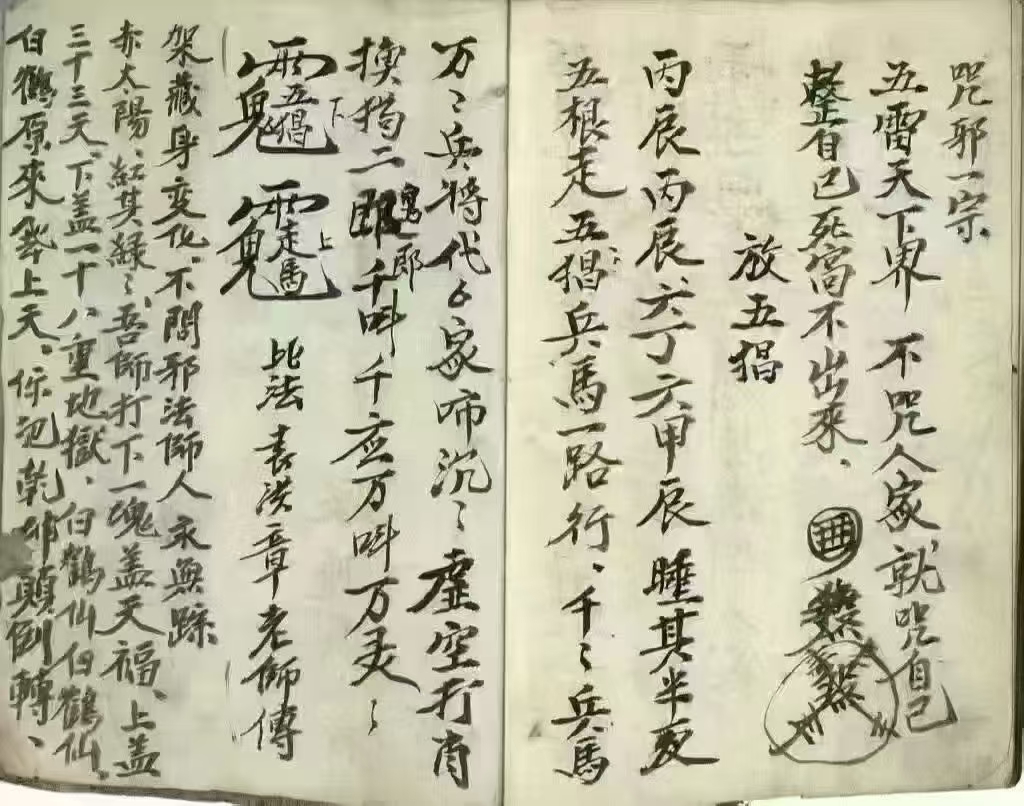 咒邪一宗
五雷天下界 不咒人家就咒自己
整自己死窩不出來、
放五猖
丙辰丙辰、六丁六甲辰睡其半夜
五根走五猖兵馬一路行、千〻兵馬
万〻兵將代〻家啼沉〻虛空打肖
换猖二郎千叫千应万叫万灵〻
五猖 下
走馬 上
此法袁洪章老師傳
架藏身变化、不問邪法師人永無踪
赤太陽、紅其綠〻、吾師打下一塊盖天福、上盖
三十三天、下盖一十八重地獄、白鶴仙白鶴仙、
白鶴原來飛上天、你把乾坤顛倒轉、